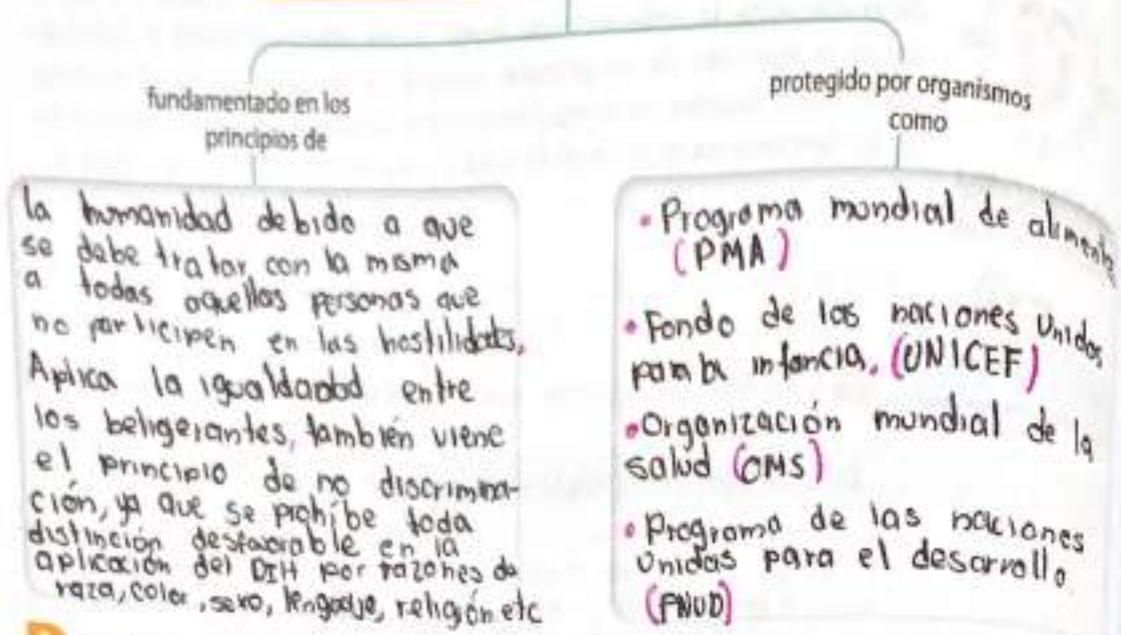 fundamentado en los
principios de
la humanidad debido a que
se debe tratar con la misma
a todas aquellas personas que
no participen en las hostilidades.
Aplica la igualdadad entre
los beligerantes, también viene
el principio de no discrimina-
ción, ya que se prohíbe toda
distinción desfavorable en la
aplicación del DIH por razones de
raza, color, sexo, lenguaje, religión etc
protegido por organismos
como
• Programa mundial de alimentos
(PMA)
• Fondo de las naciones Unidas
para la infancia. (UNICEF)
• Organización mundial de la
salud (OMS)
• Programa de las naciones
Unidas para el desarrollo
(PNUD)